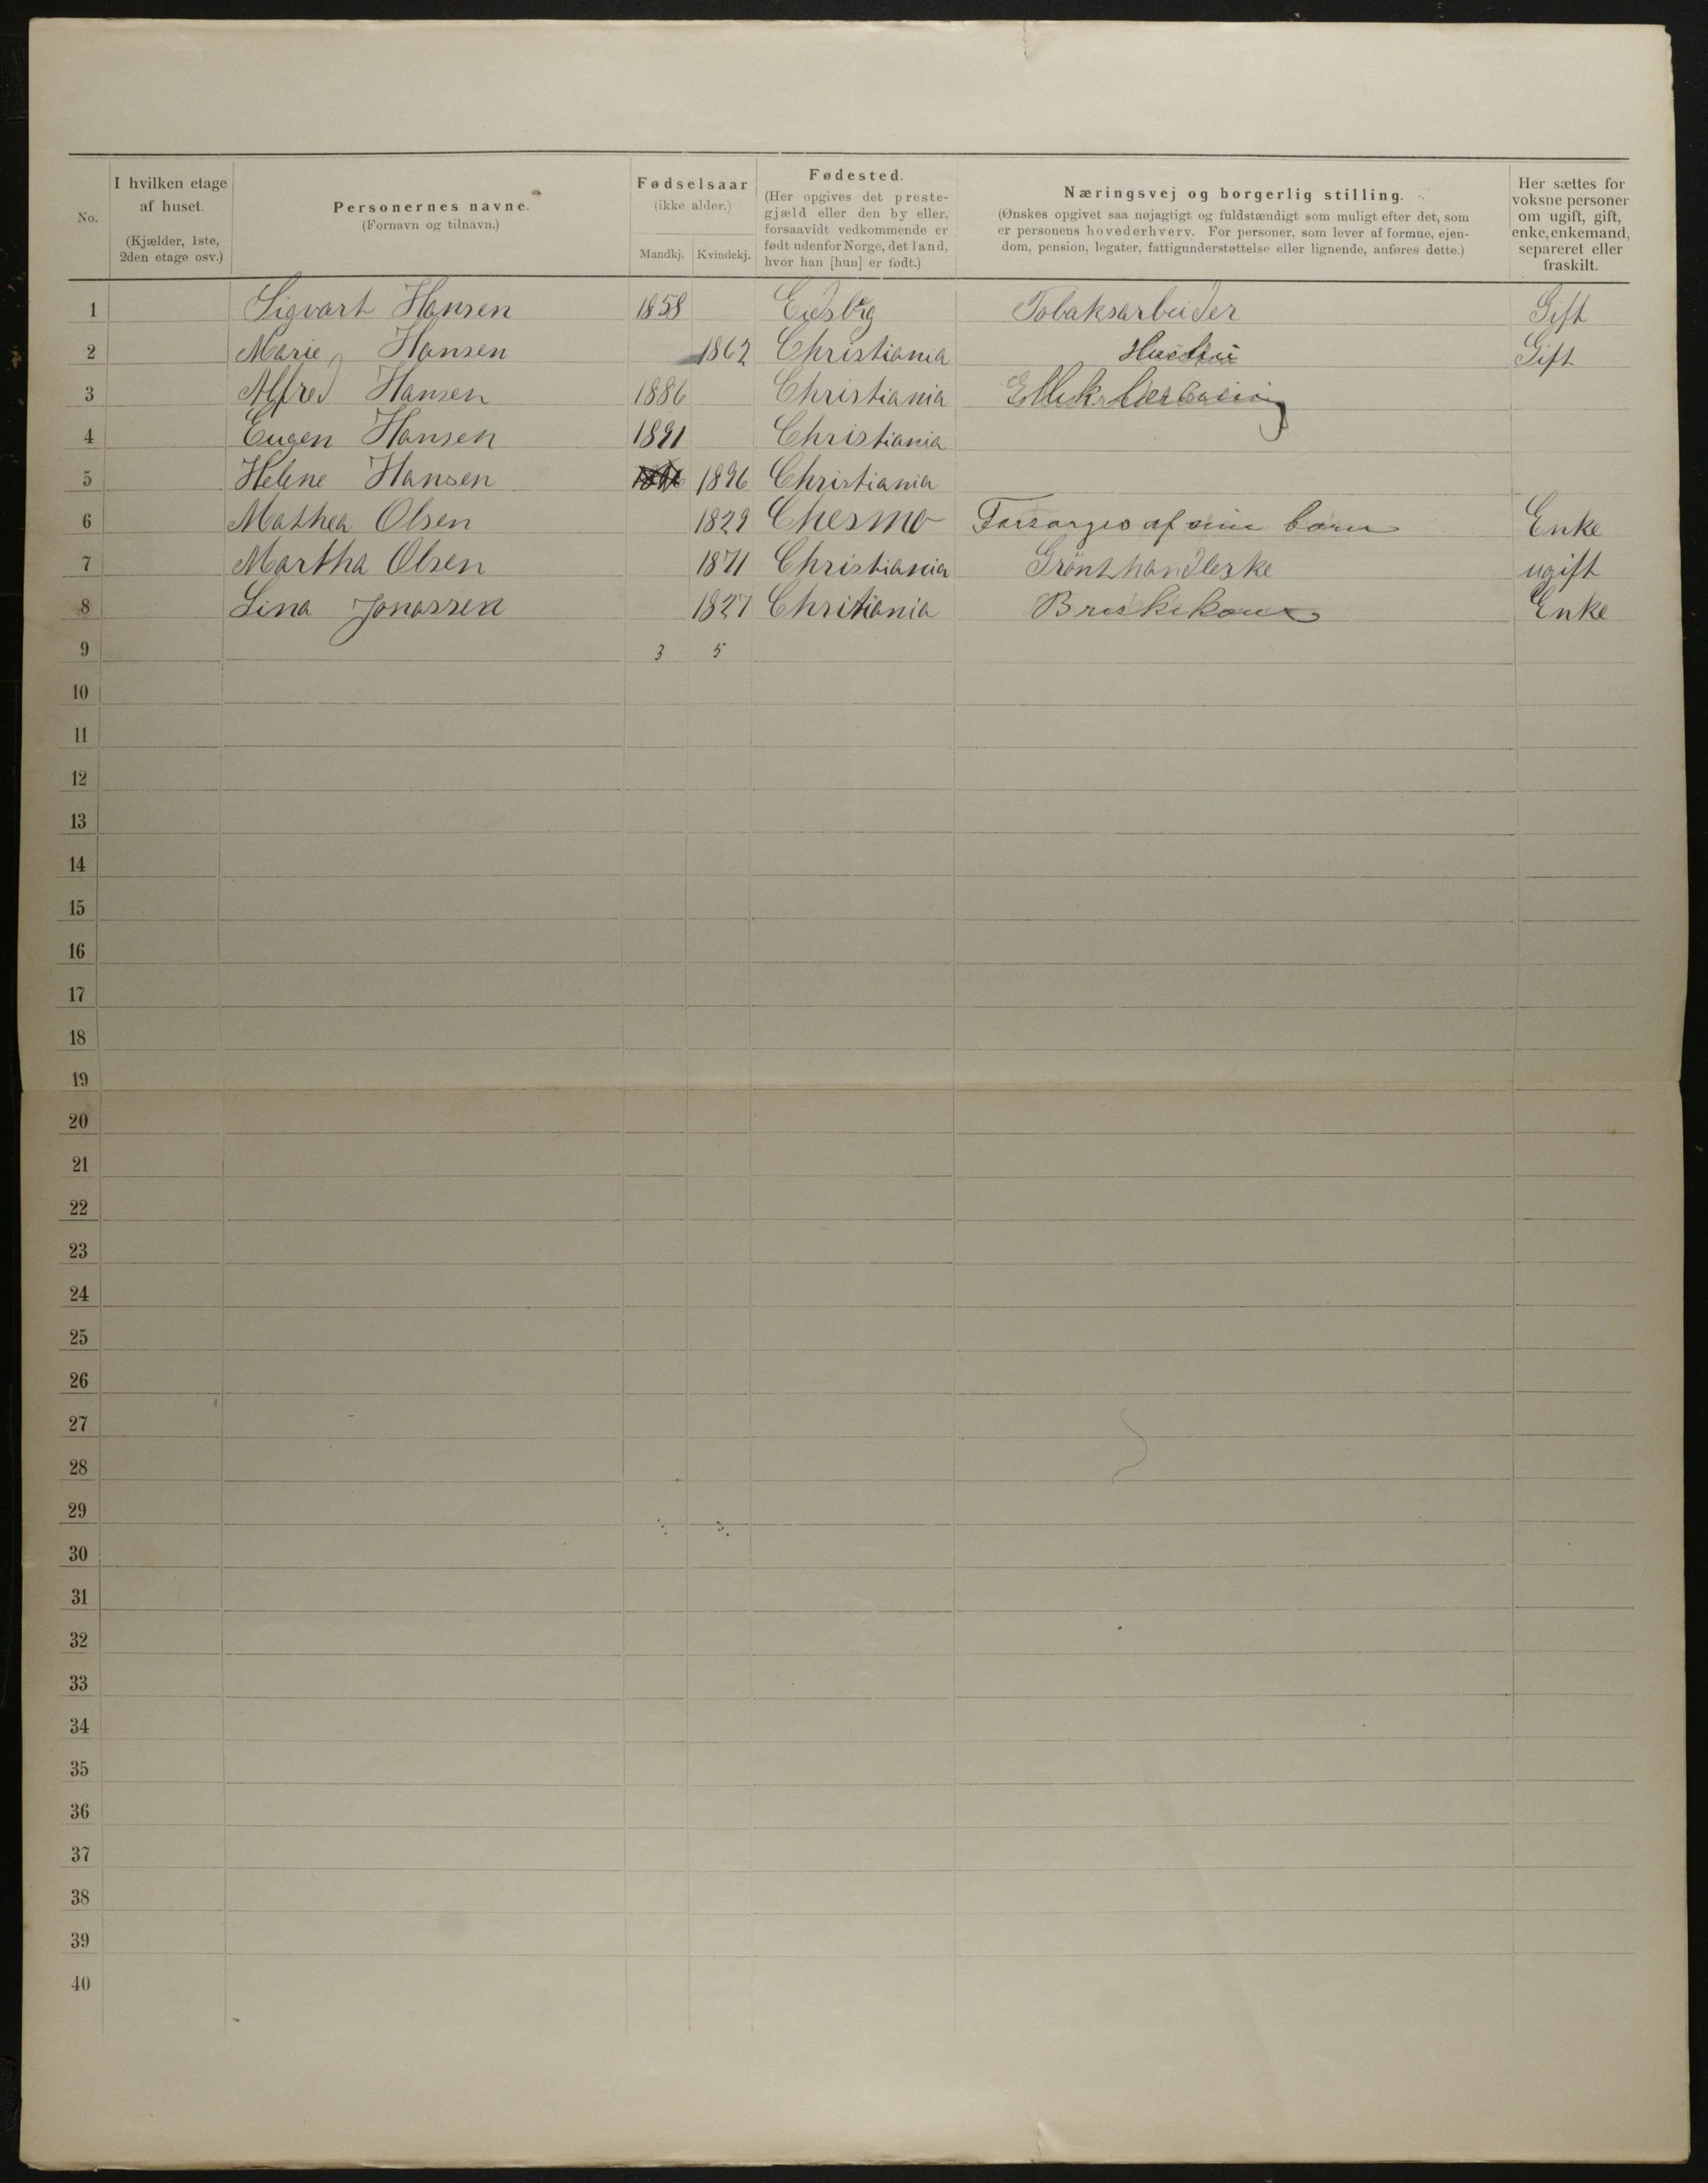 No.
I hvilken etage
af huset.
(Kjælder, 1ste,
2den etage osv.)
Personernes navne.
(Fornavn og tilnavn.)
Fødselsaar
(ikke alder.)
Mandkj. Kvindekj.
Fødested.
(Her opgives det preste-
gjæld eller den by eller,
forsaavidt vedkommende er
født udenfor Norge, det land,
hvor han [hun] er født.)
Næringsvej og borgerlig stilling.
(Ønskes opgivet saa nøjagtigt og fuldstændigt som muligt efter det, som
er personens hovederhverv. For personer, som lever af formue, ejen-
dom, pension, legater, fattigunderstøttelse eller lignende, anføres dette.)
Her sættes for
voksne personer
om ugift, gift,
enke, enkemand,
separeret eller
fraskilt.
1 Sigvart Hansen 1858 Eidsbrg Tobaksarbeider Gift
2 Marie Hansen 1862 Christiania Hustru Gift
3 Alfred Hansen 1886 Christiania
4 Eugen Hansen 1891 Christiania
5 Helene Hansen 1896 Christiania
6 Mathea Olsen 1829 Chesmo Forsørges af sine børn Enke
7 Martha Olsen 1871 Christiania Grønthandlerske ugift
8 Lina Jonassen 1827 Christiania Enke
9 3 5
10
11
12
13
14
15
16
17
18
19
20
21
22
23
24
25
26
27
28
29
30
31
32
33
34
35
36
37
38
39
40